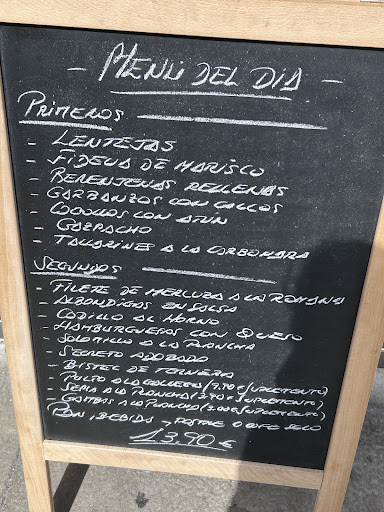 - MENU DEL DIA -
PRIMEROS
- LENTEJAS
- FIDEUA DE MARISCO
- BERENJENAS RELLENAS
- GARBANZOS CON CALLOS
- COGOLLOS CON ATÚN
- GAZPACHO
- TALLARINES A LA CARBONARA
SEGUNDOS
- FILETE DE MERLUZA A LA ROMANA
- ALBONDIGAS EN SALSA
- CODILLO AL HORNO
- HAMBURGUESAS CON QUESO
- SOLOMILLO A LA PLANCHA
- SECRETO ADOBADO
- BISTEC DE TERNERA
- PULPO A LA GALLEGA (3.90 € SUPLEMENTO)
- SEPIA A LA PLANCHA (3.90 € SUPLEMENTO)
- GAMBAS A LA PLANCHA (3.00 € SUPLEMENTO)
PAN, BEBIDA Y POSTRE O CAFE SOLO
13,90 €